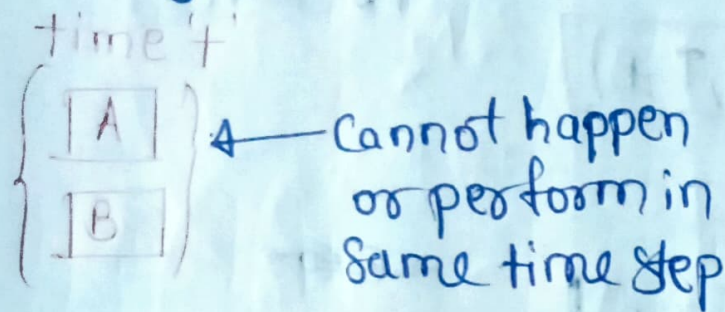 time 't'
A
B
Cannot happen
or perform in
Same time step